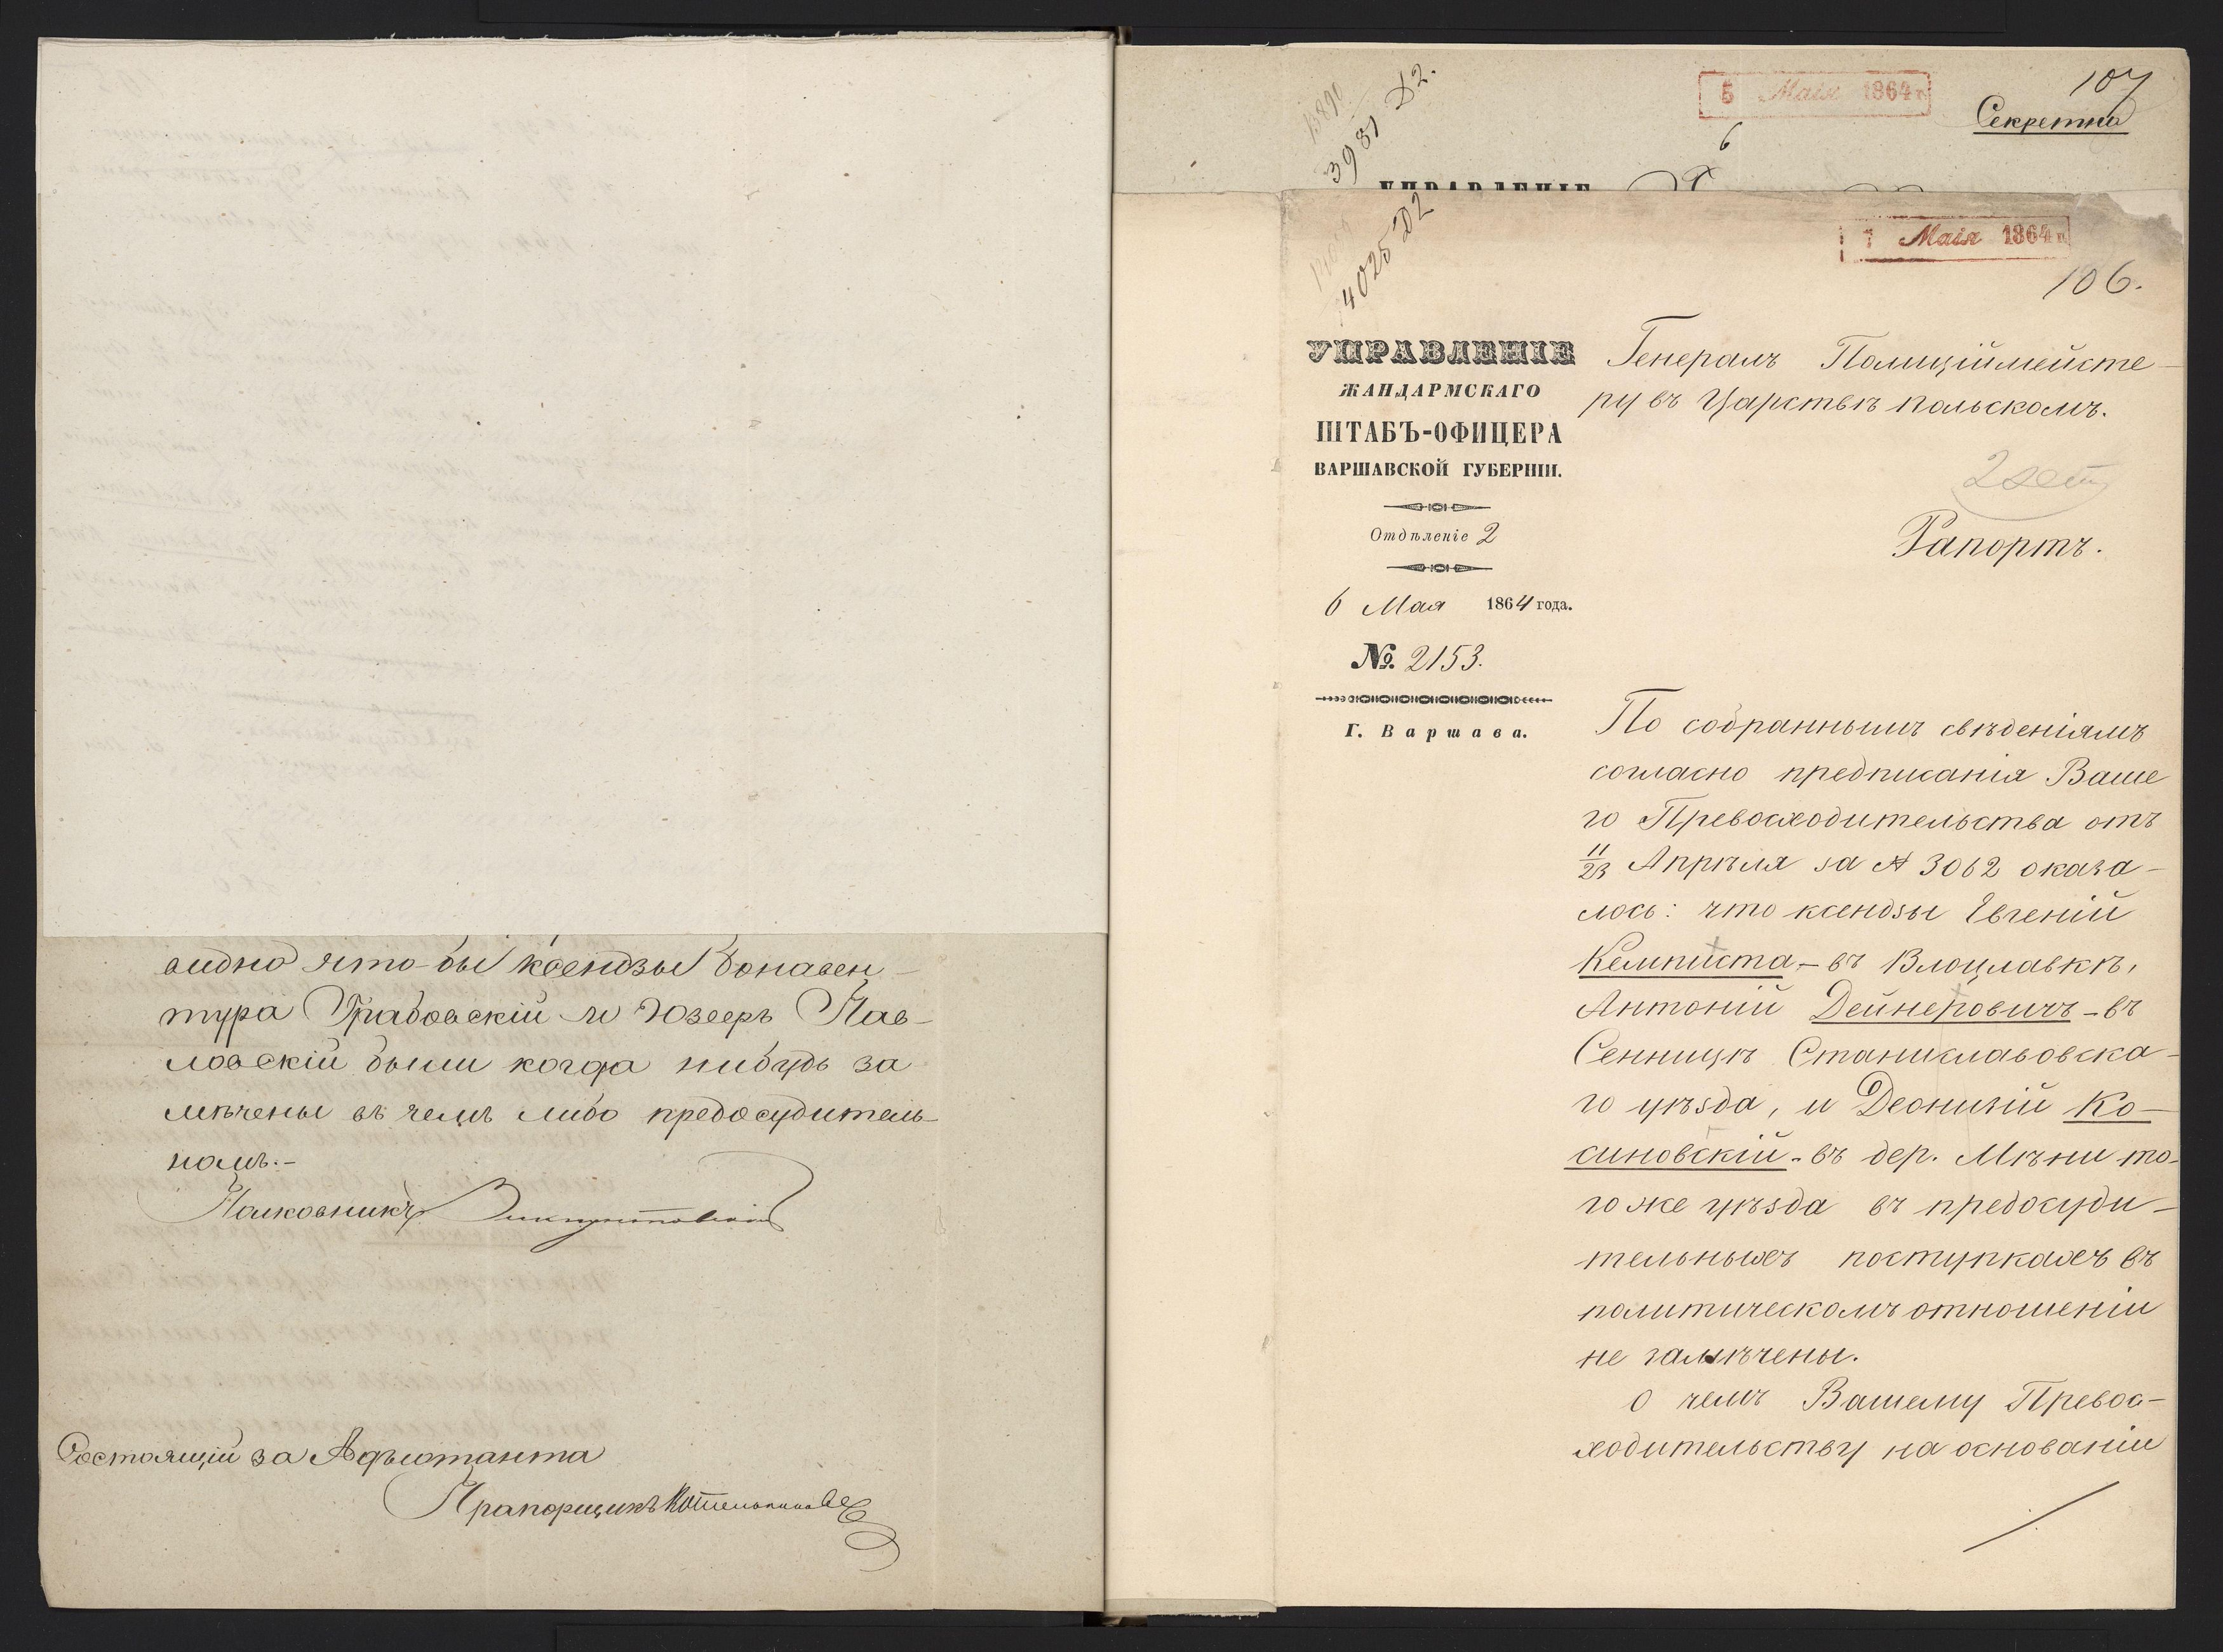 видно что-бы ксендзы Бонавен-
тура Грабовскій и Юзефъ Пав-
ловскій были когда нибудь за
мѣчены въ чемъ либо предосудитель-
номъ.-
Полковникъ
Состоящій за Адъютанта
Прапорщикъ Котельниковъ
3981 Д2.
5 Маія 1864 г.
107
Секретно
6
УПРАВЛЕНІЕ
4025 Д2
Маія 1864 г.
106.
УПРАВЛЕНІЕ
ЖАНДАРМСКАГО
ШТАБЪ-ОФИЦЕРА
ВАРШАВСКОЙ ГУБЕРНІИ.
Отдѣленіе 2
6 Мая 1864 года.
№. 2153.
Г. Варшава.
Генералъ Полиціймейсте-
ру въ Царствѣ Польскомъ.
Рапортъ.
По собраннымъ свѣденіямъ
согласно предписанія Ваше
го Превосходительства отъ
11/23 Апрѣля за № 3062 оказа-
лось: что ксендзы Евгеній
Кемписта,- въ Влоцлавкѣ,
Антоній Дейнеровичъ - въ
Сенницѣ Станиславовска-
го уѣзда, и Деонизій Ко-
синовскій - въ дер. Мѣни то-
го же уѣзда въ предосуди-
тельныхъ поступкахъ въ
политическомъ отношеніи
не замѣчены.
О чемъ Вашему Превос-
ходительству на основаніи